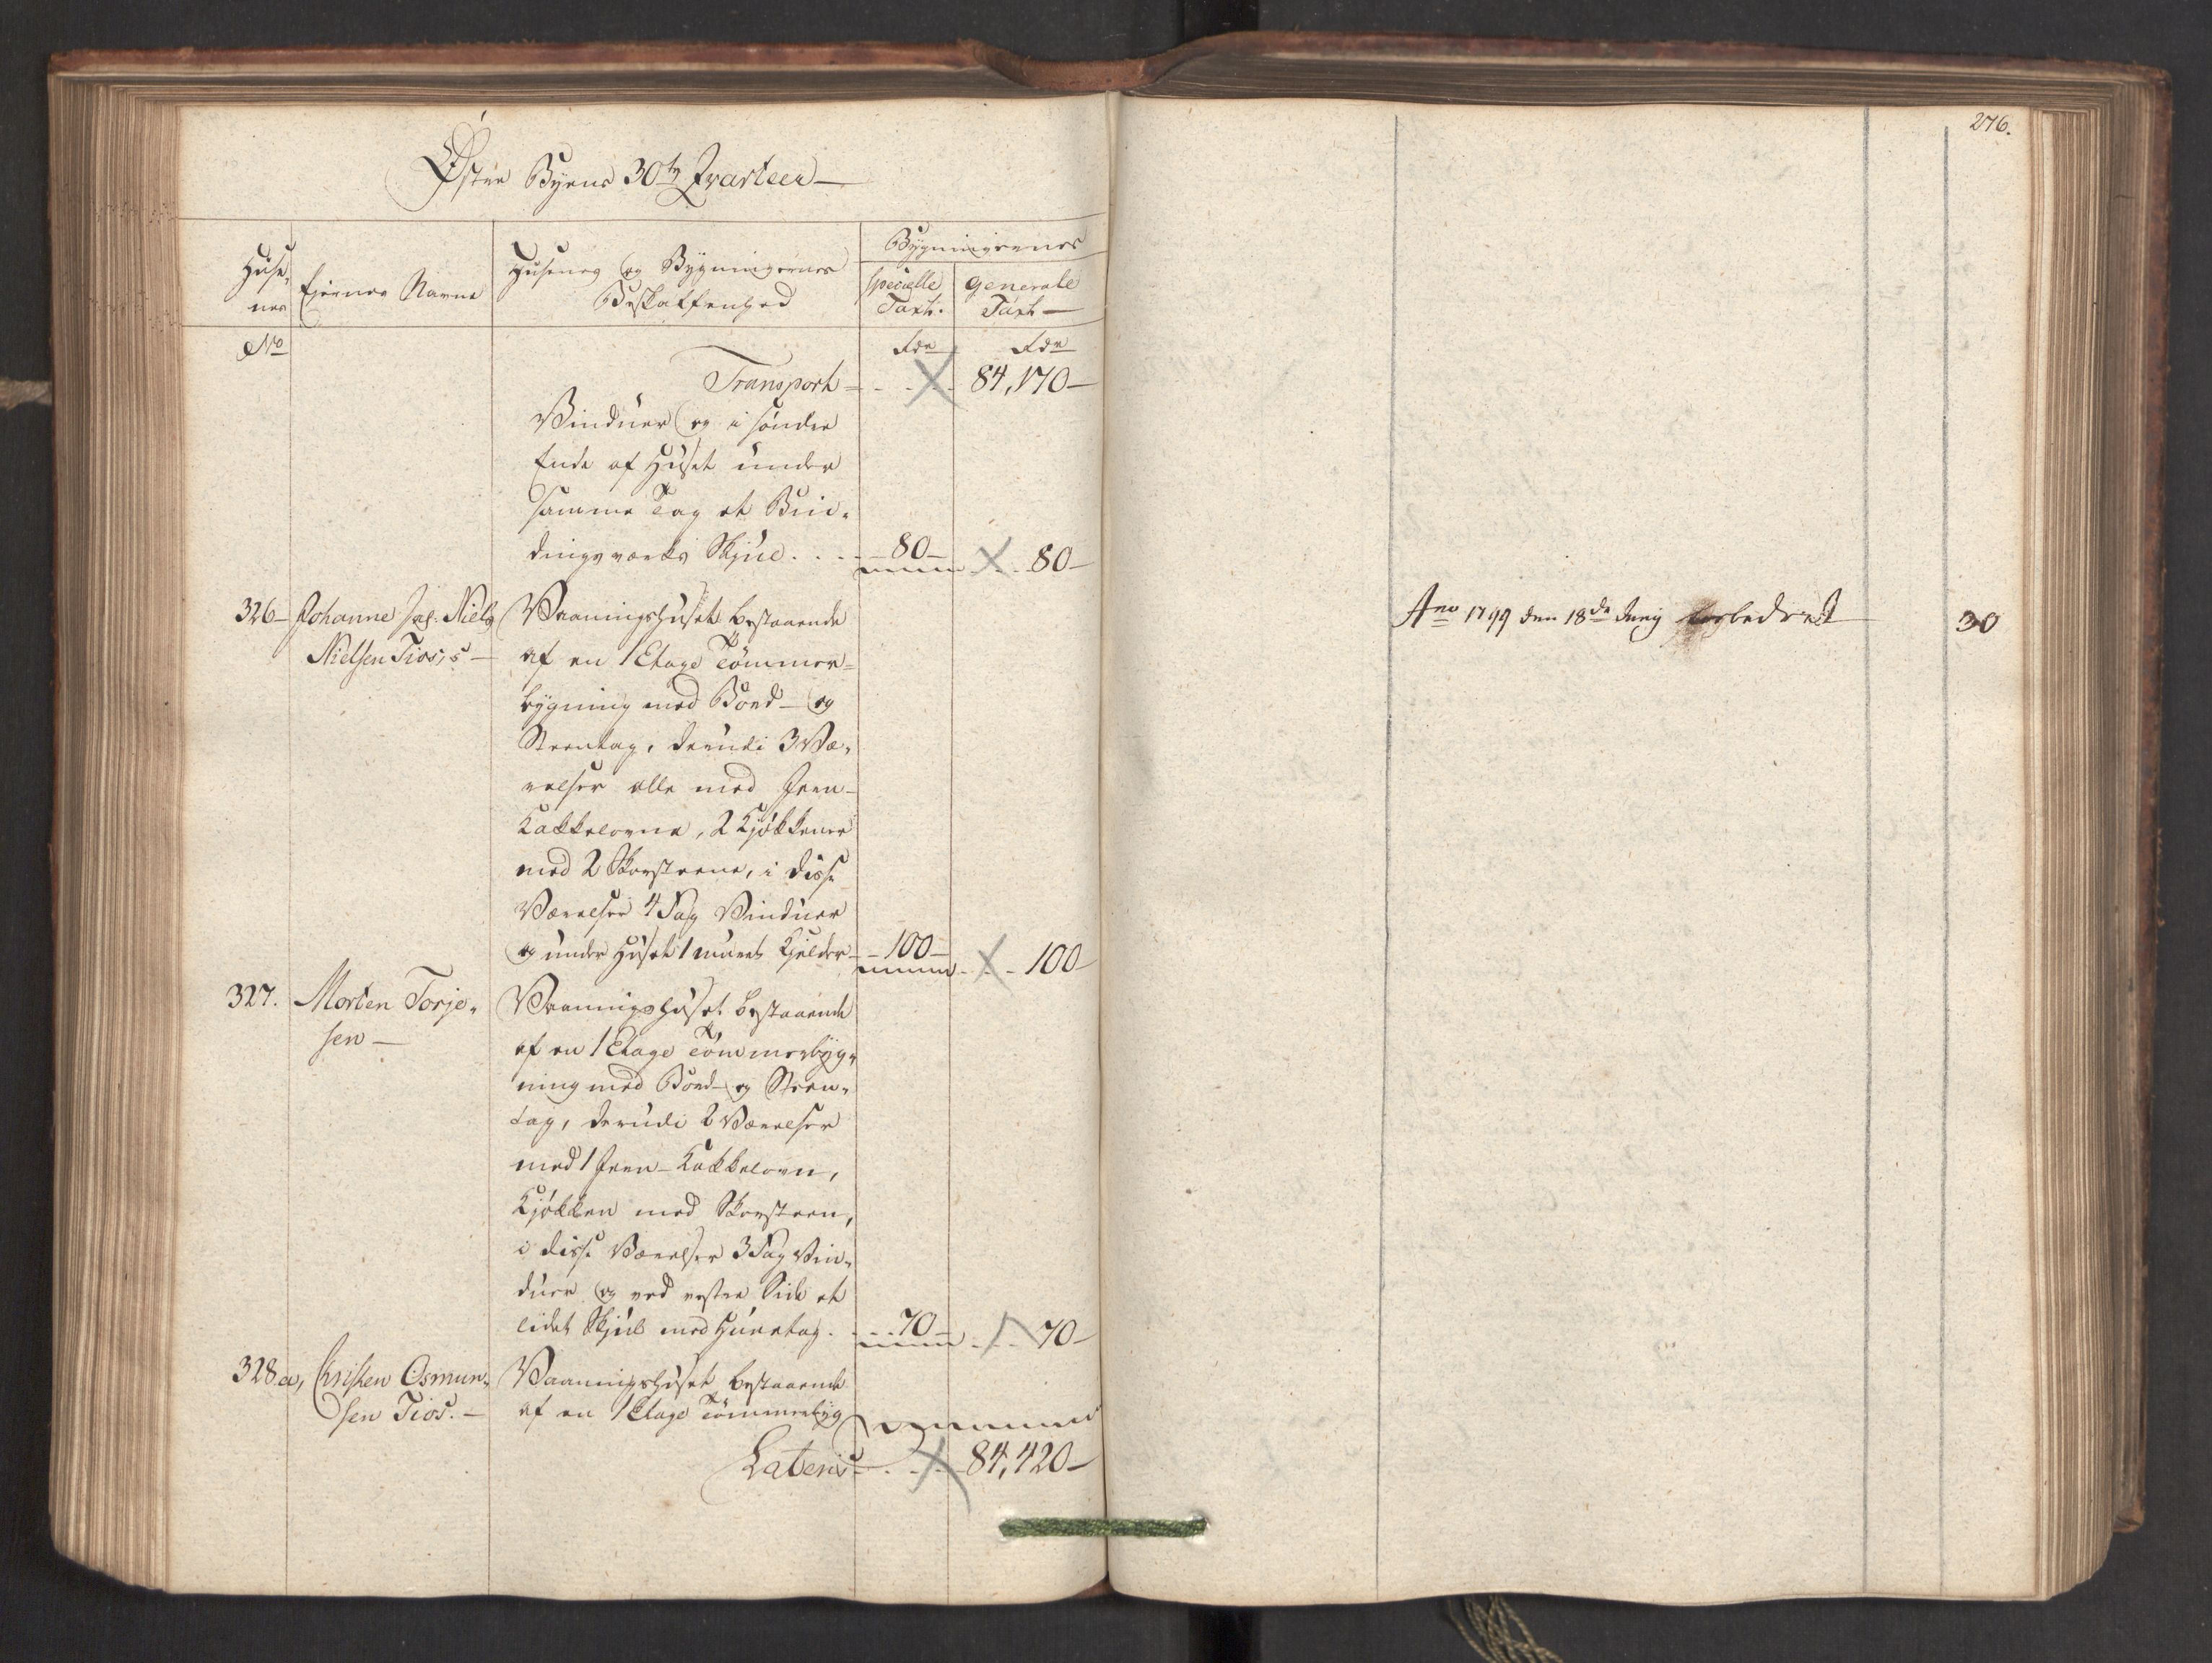 276.
Østre Byens 30te Qvarteer
Huse-
nes
Eiernes Navne
Husenes og Bygningernes
Beskaffenhed
Bygningernes
specielle
Taxt.
generale
Taxt
No
Rdr
Rdr
Transport 84,170
Vinduer og i søndre
Ende af Huset under
samme Tag et Bin-
dingsværks Skjul. 80 80
326 Johanne Niels
Nielsen Tios's
Vaaningshuset bestaaende
af en 1 Etage Tømmer-
bygning med Bord- og
Steentag, derudi 3 Væ-
relser alle med Jern-
Kakkelovne, 2 Kjøkkener
med 2 Skorsteene, i disse
Værelser 4 Fag Vinduer
og under Huset 1 muret Kjelder 100 100
327. Morten Torje-
sen
Vaaningshuset bestaaende
af en 1 Etage Tømmerbyg-
ning med Bord- og Steen-
tag, derudi 2 Værelser
med 1 Jern-Kakkelovn,
Kjøkken med Skorsteen,
i disse Værelser 3 Fag Vin-
duer og ved vestre Side et
lidet Skjul med Huuntag. 70 70
328.a, Christen Osmun-
sen Tios.
Vaaningshuset bestaaende
af en 1 Etage Tømmerbyg
Lateris 84,420
Ano 1799 den 18de Junij forbedret 30